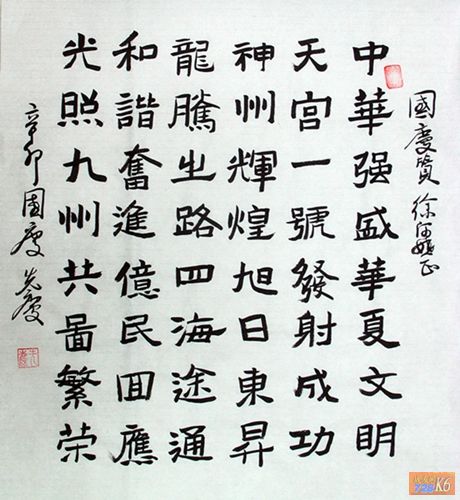 國慶贊 徐
中華强盛華夏文明
天宫一號發射成功
神州輝煌旭日東昇
龍騰㞢路四海途通
和諧奮進億民囬應
光照九州共啚繁荣
辛卯國慶
K6